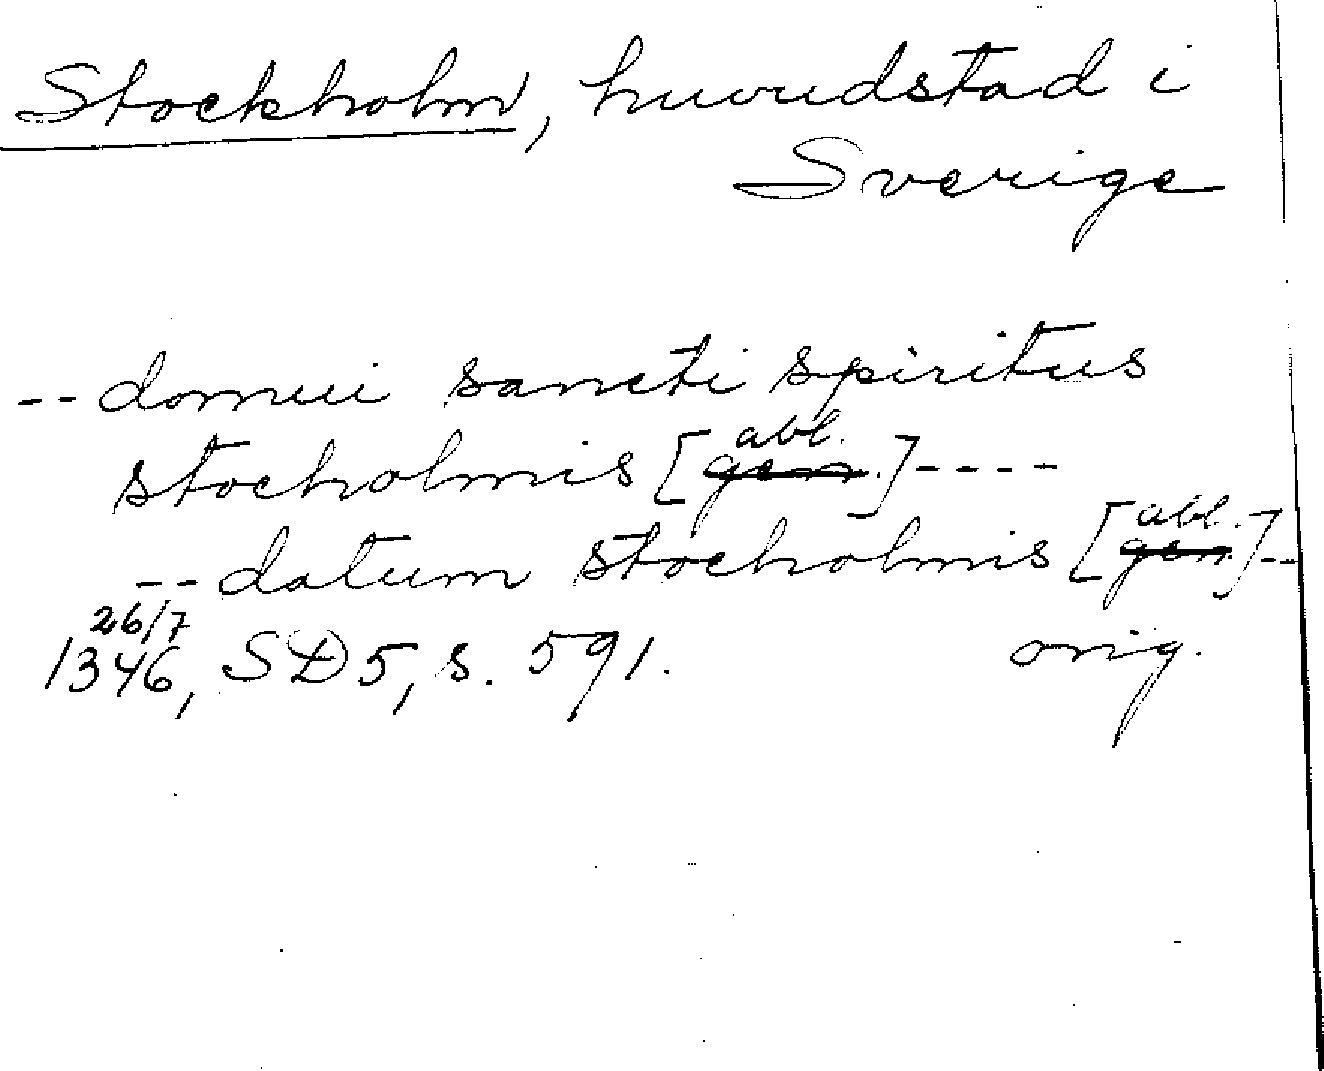 Stockholm, huvudstad i
Sverige
-- domui sancti spiritus
stocholmis [abl. gen.] ----
-- datum stocholmis [abl. gen.] --
26/7
1346, SD 5, s. 591. orig.